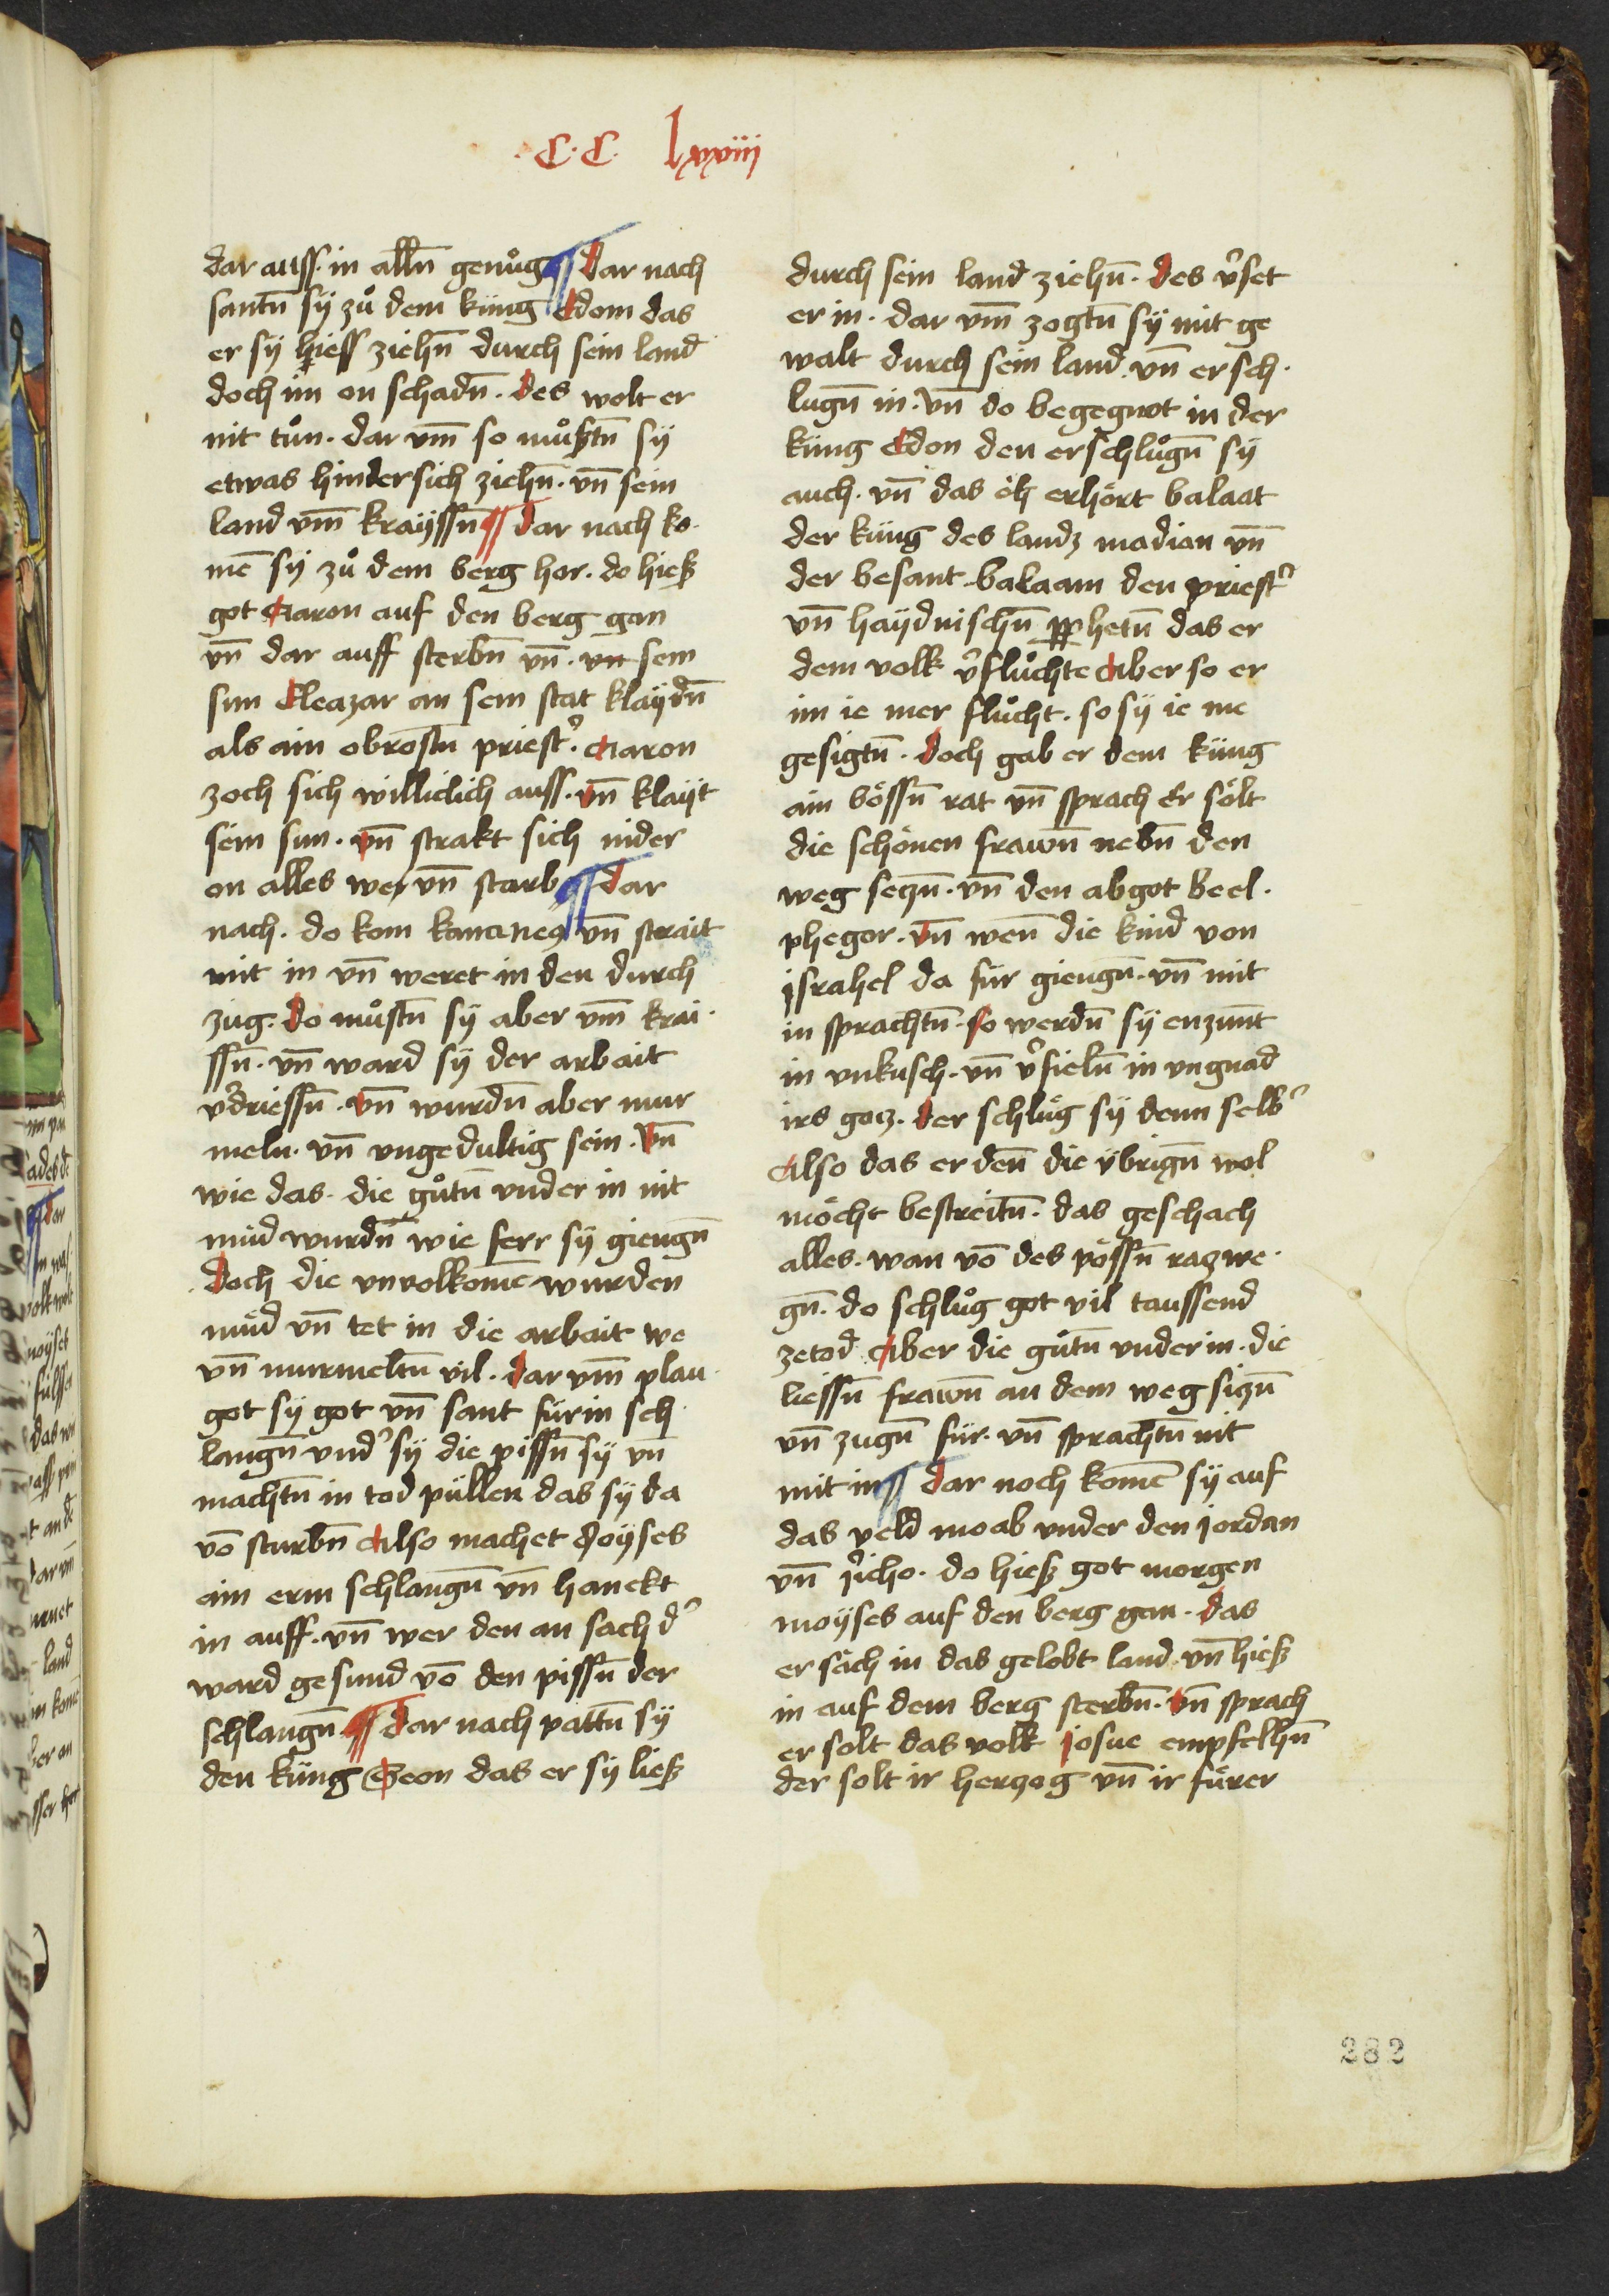 .C.C. lxxviii
dar auss. in alln̄ genůg ¶ Dar nach
santn̄ sÿ zů dem küng Edom das
er sÿ hieß ziehn̄ durch sein land
doch im on schadn̄. Des wolt er
nit tůn. dar vm̄ so můstn̄ sÿ
etwas hindersich ziehn̄. vn̄ sein
land vm̄ kraÿssn̄ ¶ Dar nach ko-
mē sÿ zů dem berg hor. do hieß
got Aaron auf den berg gan
vn̄ dar auff sterbn̄ vn̄. vn sem
sun Eleazar an sem stat klaÿdn̄
als ain obrostn̄ priest̉. Aaron
zoch sich williclich auss. Vn̄ klaÿt
sein sun. Vn̄ strakt sich nider
on alles we vn̄ starb ¶ Dar
nach. do kom kananeꝰ vn̄ strait
mit in vn̄ weret in den durch
zug. Do můstn̄ sÿ aber vm̄ krai-
ssn̄. vn̄ ward sÿ der arbait
v̉driessn̄. Vn̄ wurdn̄ aber mur
meln. vn̄ vngedultig sein. Vn̄
wie das. die gůtn̄ vnder in nit
müd wurdn̄ wie ferr sÿ giengn̄
. Doch die vnvolkomē wurden
müd vn̄ tet in die arbait we
vn̄ murmeltn̄ vil. Dar vm̄ plau-
got sÿ got vn̄ sant für in sch-
langn̄ vnd̉ sÿ die pissn̄ sÿ vn̄
machtn̄ in tod püllen das sÿ da
vō sturbn̄ Also machet Moÿses
ain erin schlangn̄ vn̄ hanckt
in auff. vn̄ wer den an sach d̉
ward gesund vō den pissn̄ der
schlangn̄. ¶ Dar nach pattn̄ sÿ
den küng Seon das er sÿ ließ
durch sein land ziehn̄. Des v̉set
er in. dar vm̄ zogtn̄ sÿ mit ge
walt durch sein land. vn̄ ersch-
lugn̄ in. vn̄ do begegnot in der
küng Edon den erschlůgn̄ sÿ
auch. vn̄ das öch erhört balaat
der küng des landz madian vn̄
der besant balaam den priest̉
vn̄ haÿdnischn̄ ꝓphetn̄ das er
dem volk v̉flůchte Aber so er
im ie mer flůcht. so sÿ ie me
gesigtn̄. Doch gab er dem küng
ain bössn̄ rat vn̄ sprach Er sölt
die schönen frawn̄ nebn̄ den
weg seczn̄. vn̄ den abgot beel-
phegor. Vn̄ wen̄ die kind von
jsrahel da für giengn̄. vn̄ mit
in sprachtn̄. So werdn̄ sÿ enzünt
in vnkusch. vn̄ v̉fieln̄ in vngnad
irs gocz. Der schlůg sÿ denn selb̉
Also das er den̄ die übrign̄ wol
möcht bestreitn̄. das geschach
alles. wan vō des pössn̄ racz we-
gn̄. do schlůg got vil taussend
zetod Aber die gůtn̄ vnder in. die
liessn̄ frawn̄ an dem weg siczn̄
vn̄ zugn̄ für. vn̄ sprachtn̄ nit
mit in ¶ Dar noch komē sÿ auf
das veld moab vnder den jordan
vn̄ j̉icho. do hieß got morgen
moÿses auf den berg gan. Das
er säch in das gelobt land. vn̄ hieß
in auf dem berg sterbn̄. Vn̄ sprach
er solt das volk Josue empfelhn̄
der solt ir herczog vn̄ ir fürer
282